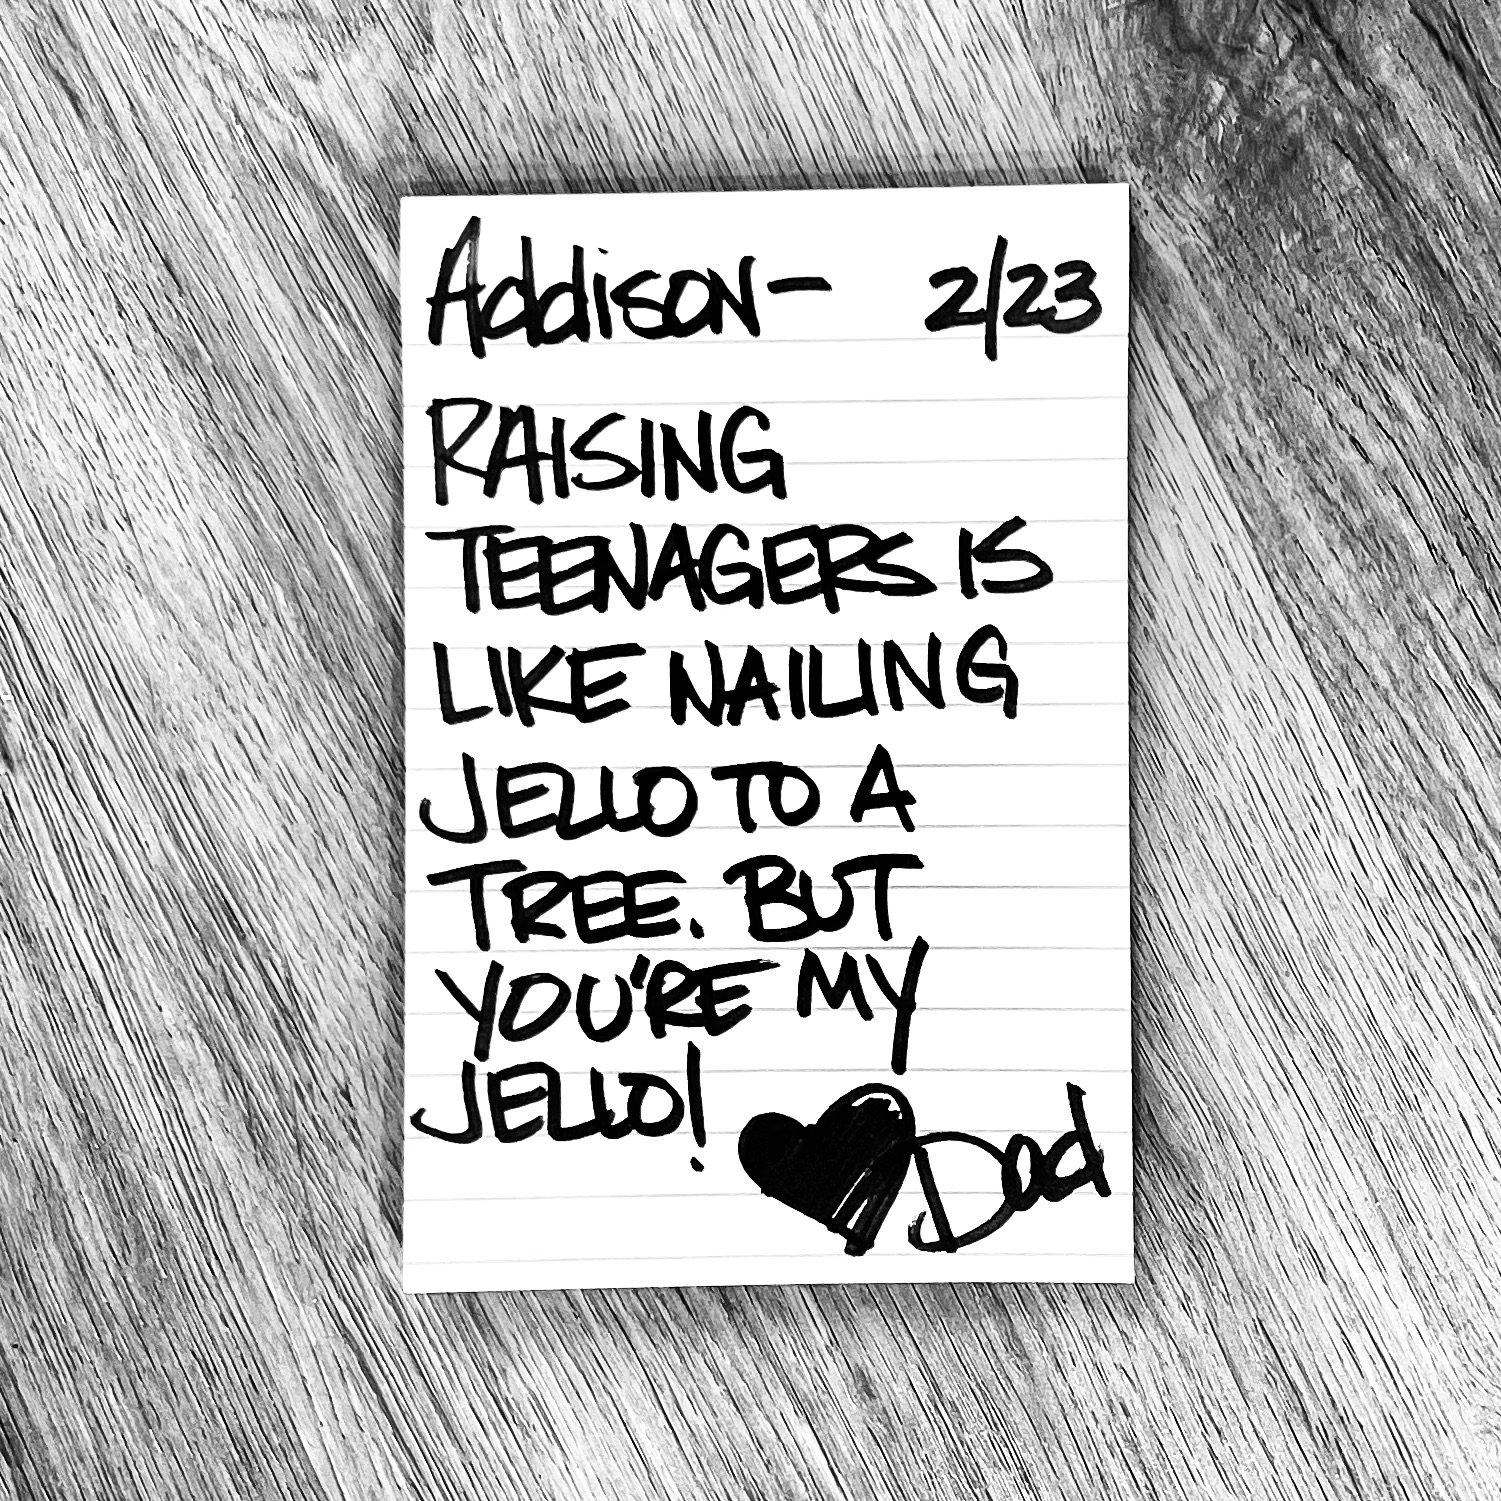 Addison- 2/23
RAISING
TEENAGERS IS
LIKE NAILING
JELLO TO A
TREE. BUT
YOU'RE MY
JELLO!
Dad